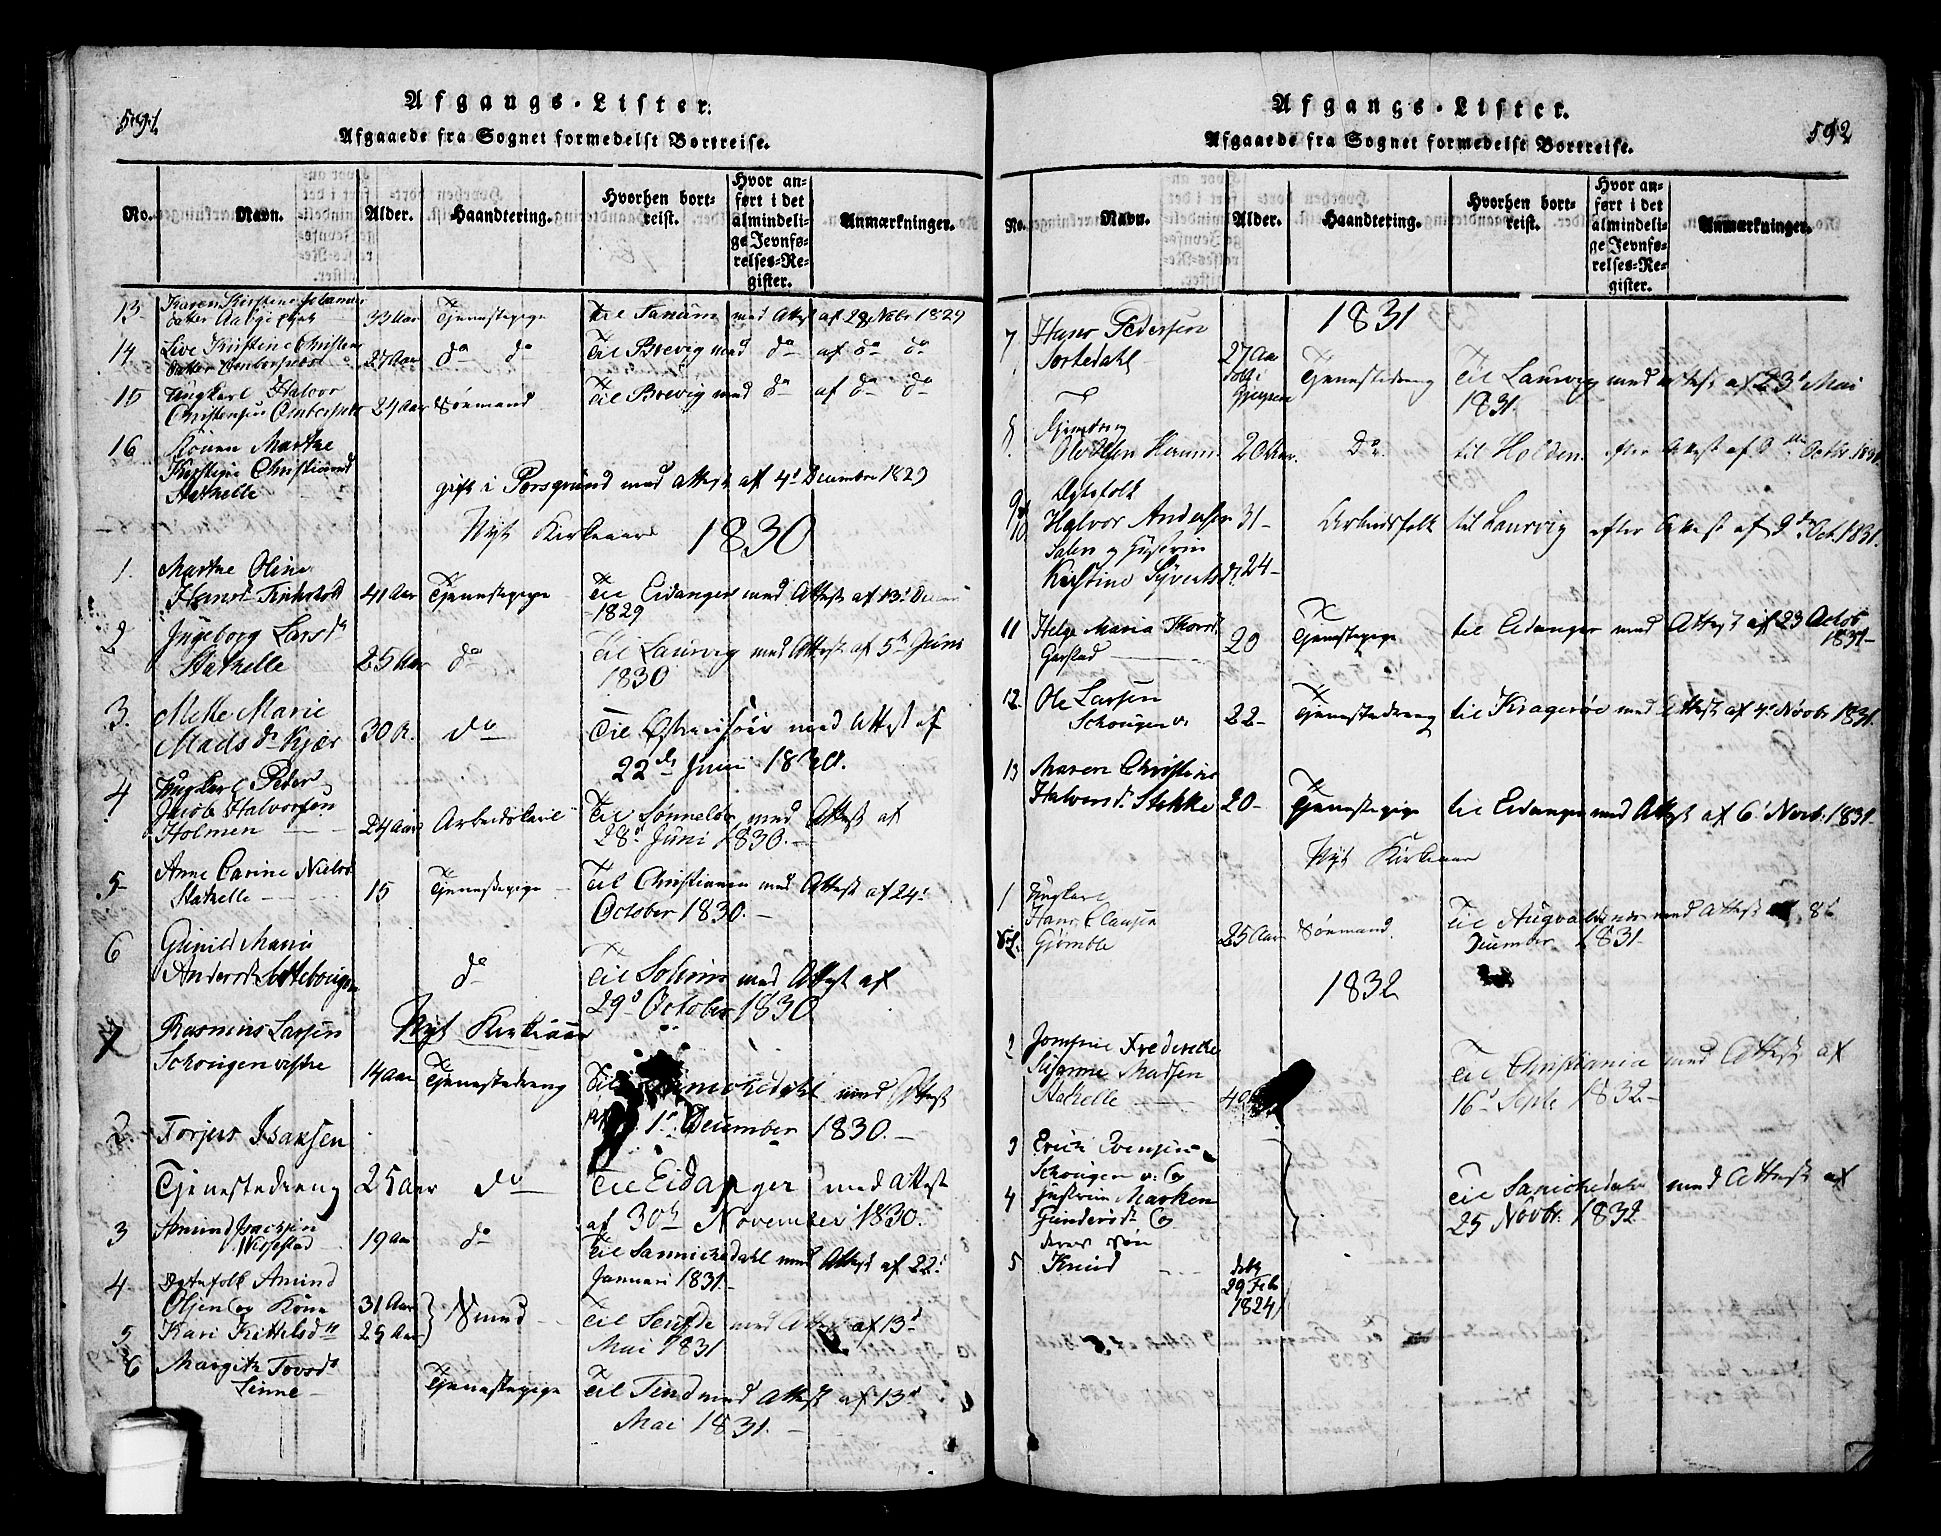 591
Afgangs-Lister.
Afgaaede fra Sognet formedelst Bortreise.
No. Navn. Alder. Haandtering. Hvorhen bortreist. Hvor anført i det almindelige Jevnførelses-Register. Anmærkninger.
13 Karen Kirstine Johannes
datter Aabye 33 Aar Tjenestepige Til Sanum med Attest af 28 Novbr 1829
14 Live Kirstine Christens
datter 27 Aar do do Til Brevig med do af do do
15 Ungkarl Halvor
Christensen 24 Aar Sømand Til Brevig med do af do do
16 Marthe
Kirstine Christiansd
Stathelle gift i Porsgrund med Attest af 4d Decembr 1829
Nyt Kirkeaar 1830
1. Marthe Oline
Hansd 41 Aar Tjenestepige Til Eidanger med Attest af 13d Decem
1829
2 Ingeborg Larsdr
Stathelle 25 Aar do Til Laurvig med Attest af 5te Juni
1830
3. Mette Marie
Madsdr Kjær 30 A. do Til Østerrisøer med Attest af
22de Juni 1830.
4 Ungkarl Peder
Jacob Halvorsen
Holmen 24 Aar Arbeidskarl Til Sønneløv med Attest af
28d Juni 1830.
5 Anne Carine Nielsd
Stathelle 15 Tjenestepige Til Christiania med Attest af 24d
October 1830.
6 Gunild Maria
Andersd do Til Solum med Attest af
29d October 1830
Nyt Kirkeaar
1 Rasmus Larsen
Schougen vestre 14 Aar Tjenestedreng Til med Attest
1ste December 1830.
2 Torjus Isaksen
Tjenestedreng 25 Aar do Til Eidanger med Attest
af 30te November 1830.
3 Amund Isachsen
19 Aar do Til Sannickedahl med Attest af 22d
Januari 1831.
4 Ægtefolk Amund
Olsen og Kone 31 Aar Smed Til med Attest af 13d
5 Kari Kittelsdtr 25 Aar Mai 1831
6 Margith Tovsdr
Linne Tjenestepige Til Tind med Attest af 13d
Mai 1831.
592
Afgangs-Lister.
Afgaaede fra Sognet formedelst Bortreise.
No. Navn. Alder. Haandtering. Hvorhen bortreist. Hvor anført i det almindelige Jevnførelses-Register. Anmærkninger.
1831
7 Hans Pedersen
Sortedahl 27 Aar Tjenestedreng Til Laurvig med Attest af 23d Mai
1831.
8.
Ole Olsen 20 Aar. Do. til Holden efter Attest af Octbr. 1831
Ægtefolk
9 og 10 Halvor Andersen 31 Arbeidsfolk til Laurvig efter Attest af 9de Oct. 1831.
og Hustrue
Kirstine Syvertsdr 24
11 Helge Maria Thorsd
Garstad 20 Tjenestepige til Eidanger med Attest af 23 Octob
1831
12. Ole Larsen
Schougen v. 22 Tjenestedreng til Kragerøe med Attest af 4d Novbr 1831.
13 Maren Christine
Halvorsdr. Stokke 20 Tjenestepige til Eidanger med Attest af 6d Novb. 1831
Nyt Kirkeaar
1 Ungkarl
Hans Clausen
Gjømble 25 Aar Sømand. Til Augvaldsnes med Attest af 8de
December 1831
1832
2 Jomfrue Frederikke
Susanne Madsen
Stathelle Til Christiania med Attest af
16d Septe 1832
3 Erich Evensen
Schougen v. og
4 Hustrue Maren
Gundersdr og Til Sanickedahl med Attest af
25 Novbr. 1832
deres Søn
5 Knud født
29 Feb
1824